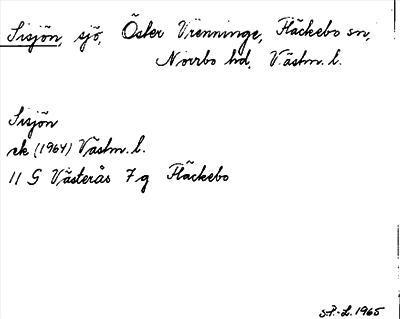 Sisjön, sjö, Öster Vrenninge, Fläckebo sn,
Norrbo hd, Västm. l.
Sisjön
ek (1964) Västm. l.
11 G Västerås 7g Fläckebo
S.P.-L. 1965